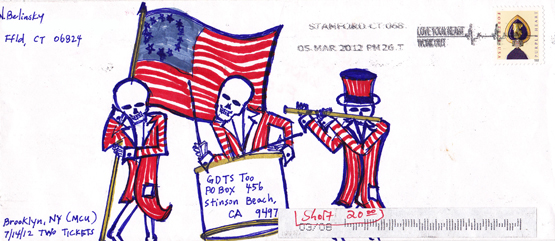 N. Belinsky
Ffld, CT 06824
STAMFORD CT 068
05 MAR 2012 PM 26 T
LOVE YOUR HEART
WORK OUT
GDTS Too
PO Box 456
Stinson Beach,
CA 9497
Brooklyn, NY (MCU)
7/14/12 TWO TICKETS
Short 20.00
03/08